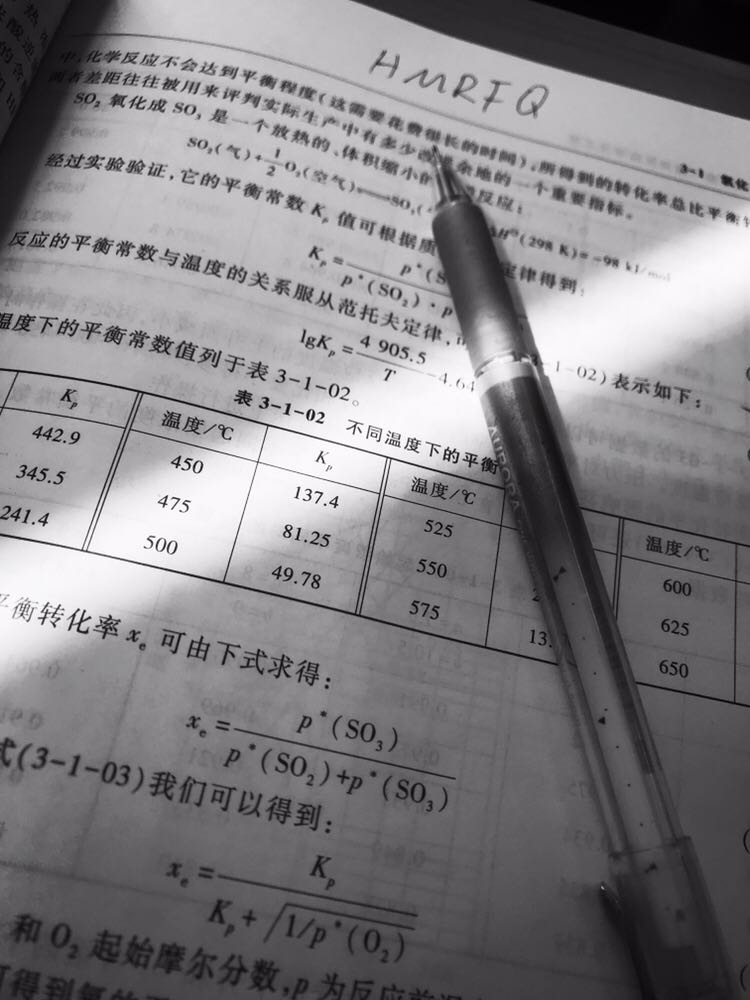 HMRFQ
3-1 氧化
中,化学反应不会达到平衡程度(这需要花费很长的时间),所得到的转化率总比平衡转
两者差距往往被用来评判实际生产中有多少改进余地的一个重要指标。
SO₂ 氧化成 SO₃ 是一个放热的、体积缩小的 反应:
SO₂(气)+1/2 O₂(空气)⇌SO₃( ΔH⊖(298 K)=-98 kJ/mol
经过实验验证,它的平衡常数 Kₚ 值可根据质 定律得到:
Kₚ= p*(S / p*(SO₂)·p
反应的平衡常数与温度的关系服从范托夫定律, 3-1-02)表示如下:
lgKₚ= 4 905.5 / T -4.64
温度下的平衡常数值列于表 3-1-02。
表 3-1-02 不同温度下的平衡
Kₚ 温度/℃ Kₚ 温度/℃ 温度/℃
442.9 450 137.4 525 600
345.5 475 81.25 550 625
241.4 500 49.78 575 13. 650
平衡转化率 xₑ 可由下式求得:
xₑ= p*(SO₃) / p*(SO₂)+p*(SO₃)
式(3-1-03)我们可以得到:
xₑ= Kₚ / Kₚ+√1/p*(O₂)
和 O₂ 起始摩尔分数,p 为反应前
可得到
AURORA